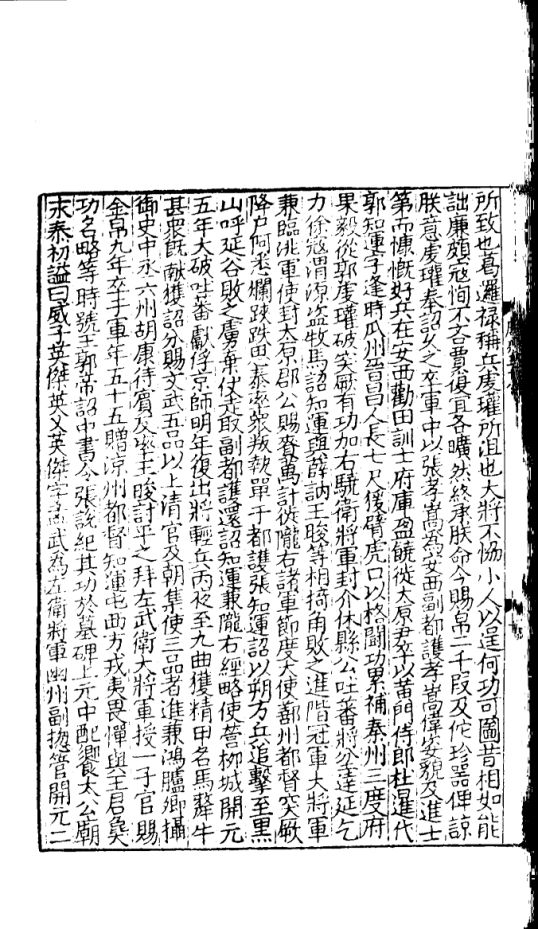 所致也葛邏祿稱兵虔瓘所沮也大將不恊小人以逞何功可圖昔相如能
詘廉頗寇恂不吝賈復宜各曠然終承朕命今賜帛二千段及佗珍器俾諒
朕意虔瓘奉詔久之卒軍中以張孝嵩爲安西副都護孝嵩偉姿貌及進士
第而慷慨好兵在安西勸田訓士府庫盈饒徙太原尹卒以黃門侍郎杜暹代
郭知運字逢時瓜州晉昌人長七尺猨臂虎口以格鬬功累補秦州三度府
果毅從郭虔瓘破突厥有功加右驍衛將軍封介休縣公吐蕃將坌達延乞
力徐寇渭源盜牧馬詔知運與薛訥王晙等相掎角敗之進階冠軍大將軍
兼臨洮軍使封太原郡公賜賚萬計徙隴右諸軍節度大使鄯州都督突厥
降戶阿悉爛跌跌思泰率衆叛執單于都護張知運詔以朔方兵追擊至黑
山呼延谷敗之虜棄仗走取副都護還詔知運兼隴右經略使營柳城開元
五年大破吐蕃獻俘京師明年復出將輕兵丙夜至九曲獲精甲名馬犛牛
甚衆旣獻獲詔分賜文武五品以上清官及朝集使三品者進兼鴻臚卿攝
御史中丞六州胡康待賓反率王晙討平之拜左武衛大將軍授一子官賜
金帛九年卒于軍年五十五贈涼州都督知運屯西方戎夷畏憚與王君㚟
功名略等時號王郭帝詔中書令張說紀其功於墓碑上元中配饗太公廟
末泰初謚曰威子英傑英乂英傑字孟武爲左衛將軍幽州副揔管開元二